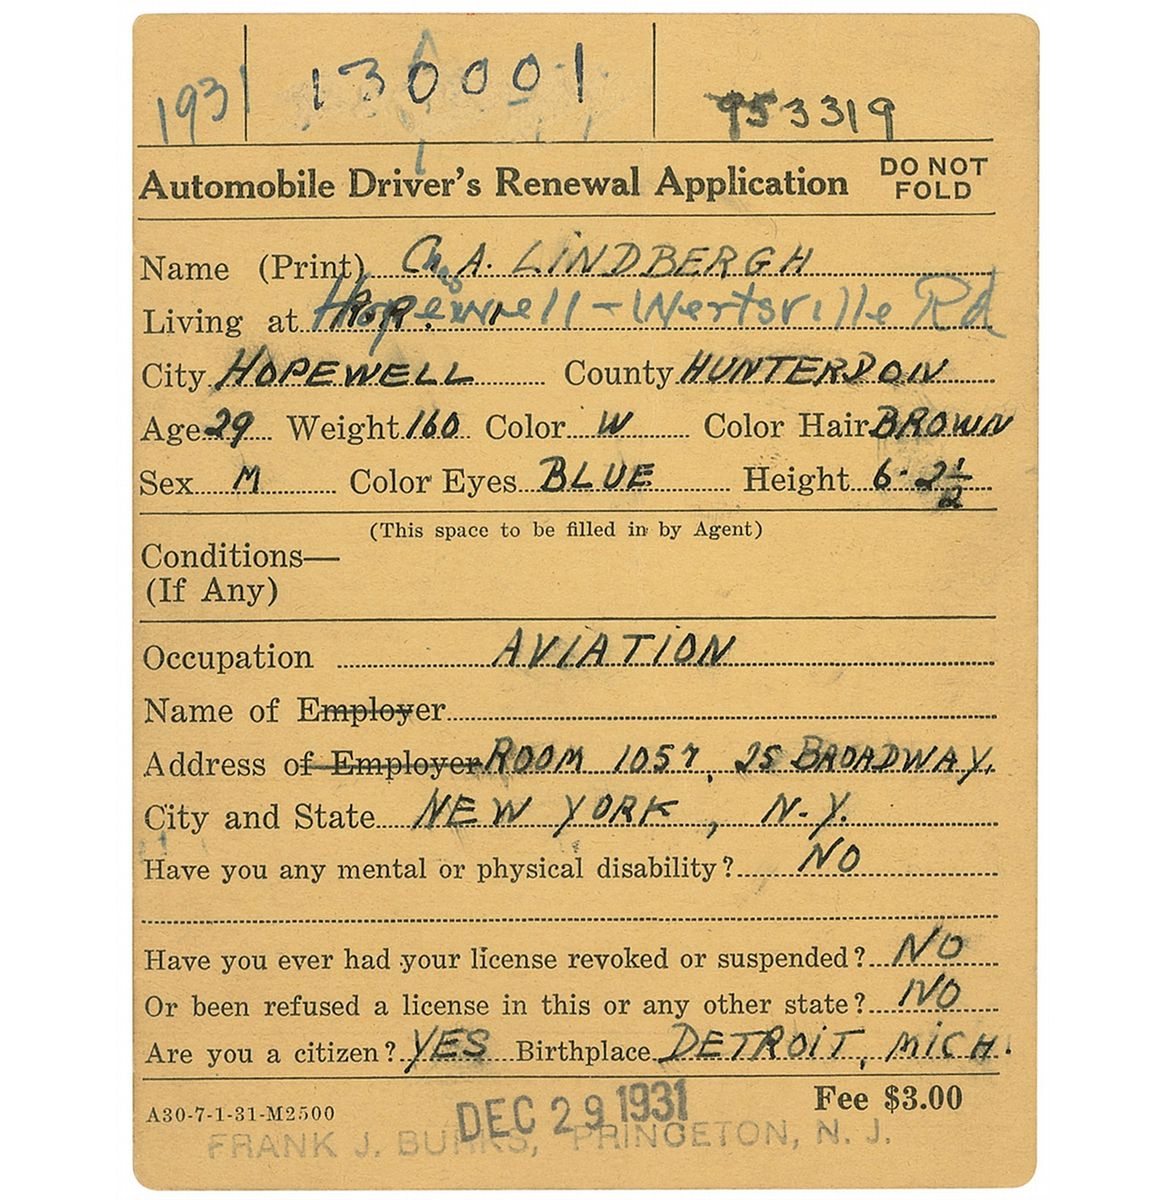 1931 130001 953319
Automobile Driver's Renewal Application DO NOT FOLD
Name (Print) Chas A. LINDBERGH
Living at R.R. 1 Hopewell - Wertsville Rd
City HOPEWELL County HUNTERDON
Age 29 Weight 160 Color W Color Hair BROWN
Sex M Color Eyes BLUE Height 6-2 1/2
(This space to be filled in by Agent)
Conditions—
(If Any)
Occupation AVIATION
Name of Employer
Address of Employer ROOM 1057, 25 BROADWAY.
City and State NEW YORK, N.Y.
Have you any mental or physical disability? NO
Have you ever had your license revoked or suspended? NO
Or been refused a license in this or any other state? NO
Are you a citizen? YES Birthplace DETROIT, MICH.
A30-7-1-31-M2500 DEC 29 1931 Fee $3.00
FRANK J. BURKS, PRINCETON, N. J.